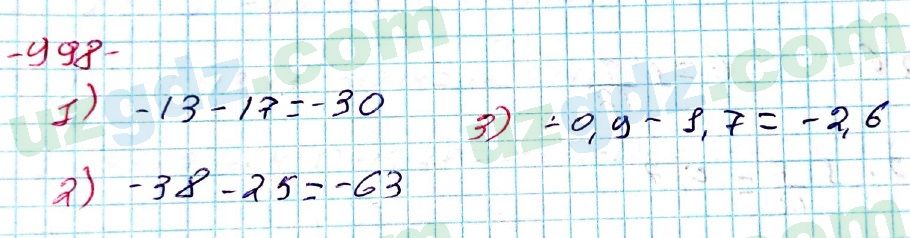 -998-
1) -13-17=-30
2) -38-25=-63
3) -0,9-1,7=-2,6
uzgdz.com
uzgdz.com
uzgdz.com